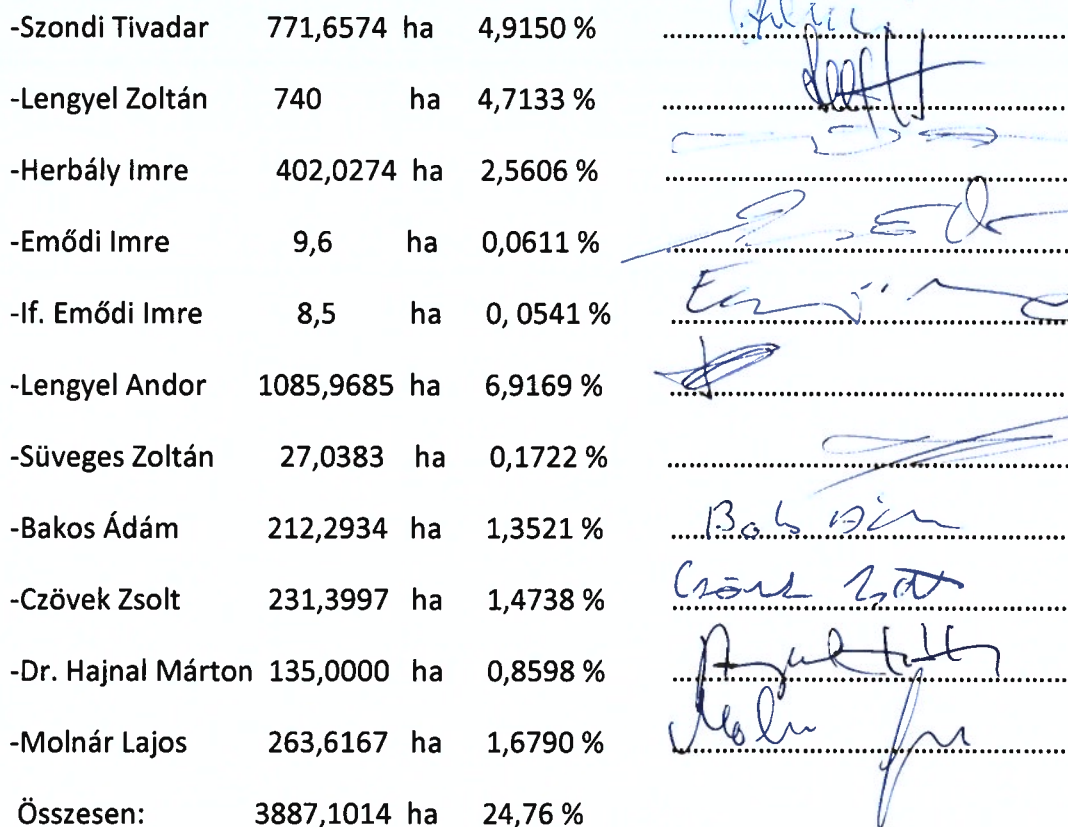 -Szondi Tivadar 771,6574 ha 4,9150 % ........................................
-Lengyel Zoltán 740 ha 4,7133 % ........................................
-Herbály Imre 402,0274 ha 2,5606 % ........................................
-Emődi Imre 9,6 ha 0,0611 % ........................................
-If. Emődi Imre 8,5 ha 0, 0541 % ........................................
-Lengyel Andor 1085,9685 ha 6,9169 % ........................................
-Süveges Zoltán 27,0383 ha 0,1722 % ........................................
-Bakos Ádám 212,2934 ha 1,3521 % ........................................
-Czövek Zsolt 231,3997 ha 1,4738 % ........................................
-Dr. Hajnal Márton 135,0000 ha 0,8598 % ........................................
-Molnár Lajos 263,6167 ha 1,6790 % ........................................
Összesen: 3887,1014 ha 24,76 %